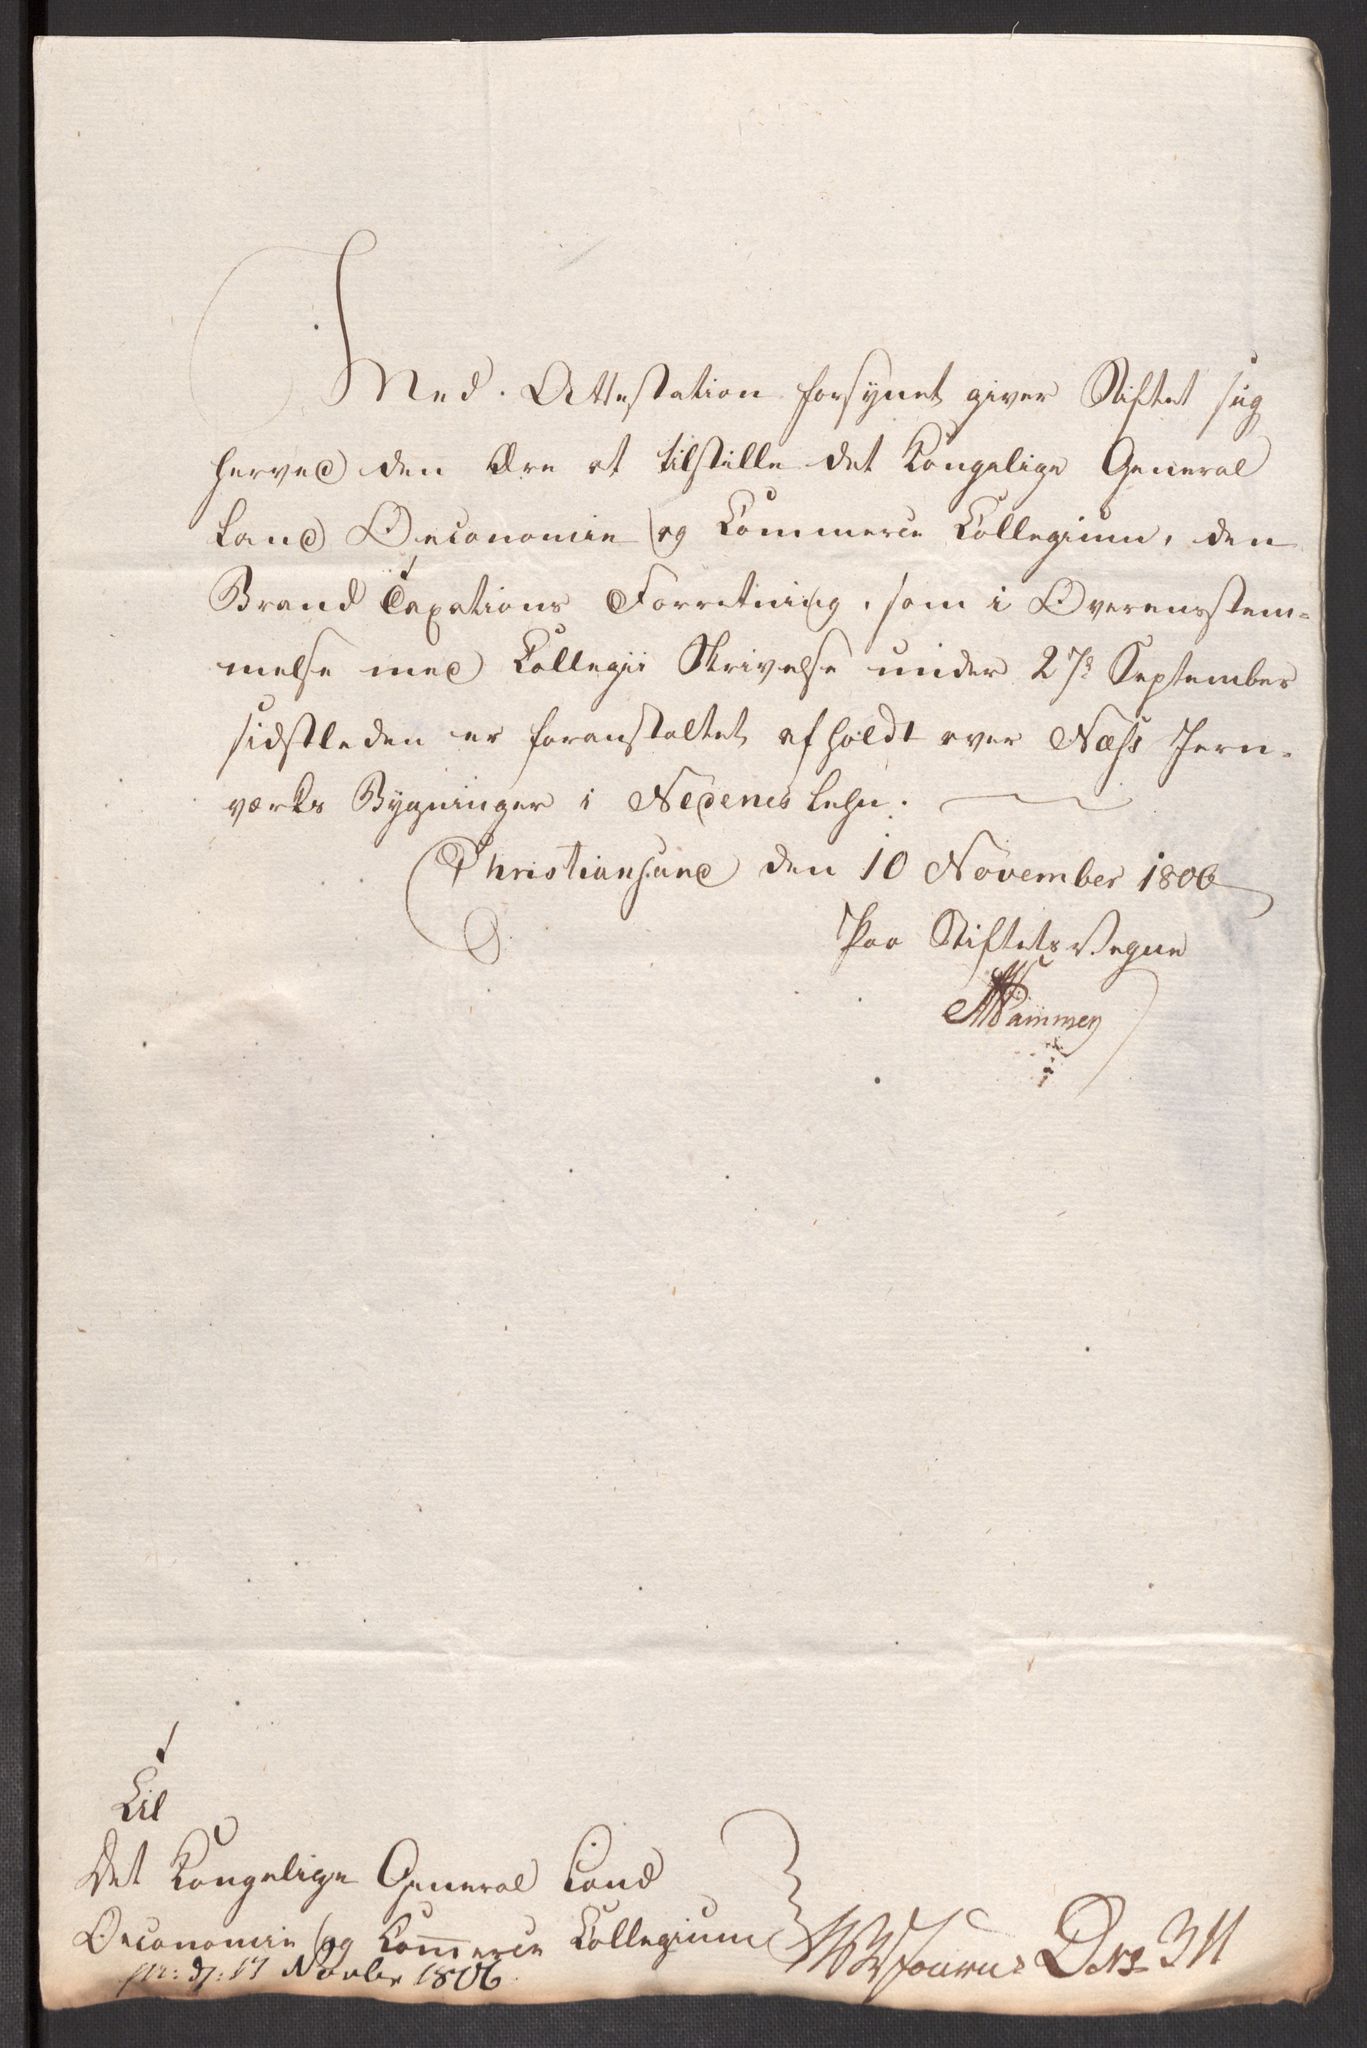 Med Attestation forsynet giver Stiftet sig
herved den Ære at tilstille det Kongelige General
Land Oeconomie og Commerce Collegium, den
Brand Taxations Forretning, som i Overensstem=
melse med Collegii Skrivelse under 27de September
sidstleden er foranstaltet afholdt over Næss Jern=
værks Bygninger i Nedenes Lehn.
Christiansand den 10 November 1806
Paa Stiftets Vegne
Til
Det Kongelige General Land
Oeconomie og Com̅erce Collegium
pr: d: 17 Novbr 1806
Journ: D No 311